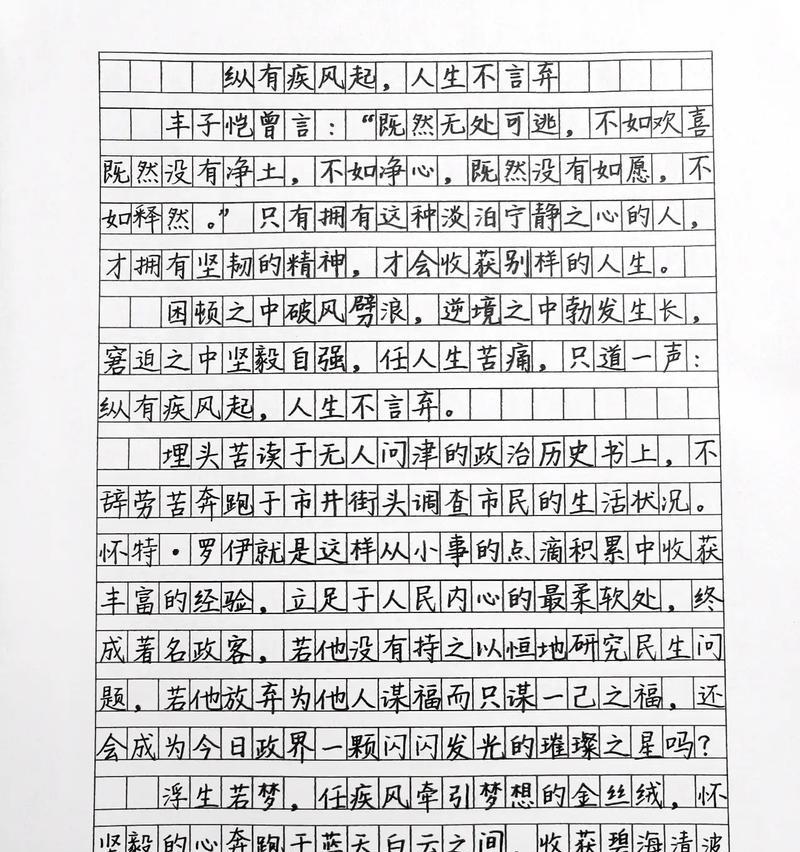 纵有疾风起，人生不言弃
丰子恺曾言：“既然无处可逃，不如欢喜
既然没有净土，不如净心，既然没有如愿，不
如释然。”只有拥有这种淡泊宁静之心的人，
才拥有坚韧的精神，才会收获别样的人生。
困顿之中破风劈浪，逆境之中勃发生长，
窘迫之中坚毅自强，任人生苦痛，只道一声：
纵有疾风起，人生不言弃。
埋头苦读于无人问津的政治历史书上，不
辞劳苦奔跑于市井街头调查市民的生活状况。
怀特·罗伊就是这样从小事的点滴积累中收获
丰富的经验，立足于人民内心的最柔软处，终
成著名政客，若他没有持之以恒地研究民生问
题，若他放弃为他人谋福而只谋一己之福，还
会成为今日政界一颗闪闪发光的璀璨之星吗？
浮生若梦，任疾风牵引梦想的金丝绒，怀
坚毅的心奔跑于蓝天白云之间，收获碧海清波